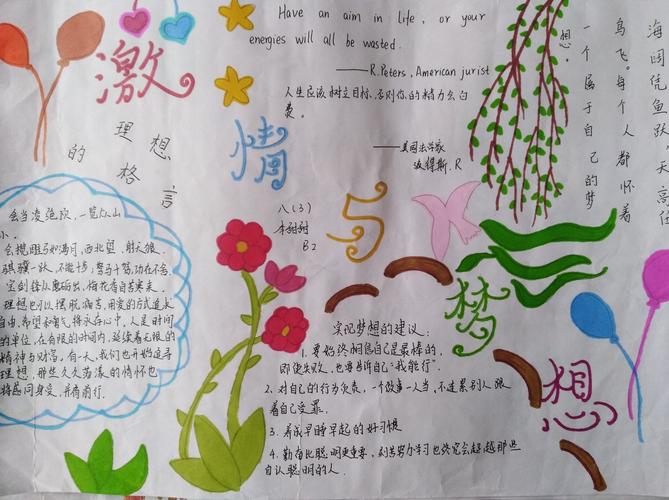 激情与梦想
Have an aim in life, or your
energies will all be wasted.
——R.Peters, American jurist
人生应该树立目标,否则你的精力会白
费。
——美国法学家
彼得斯.R
海阔凭鱼跃,天高任
鸟飞。每个人都怀着
一个属于自己的梦
想。
理想
的格言
会当凌绝顶,一览众山
小。
会挽雕弓如满月,西北望,射天狼。
骐骥一跃,不能十步;驽马十驾,功在不舍。
宝剑锋从磨砺出,梅花香自苦寒来。
理想也可以摆脱病舌,用爱的方式追求
自由,希望和勇气将永存心中,人是时间
的单位,在有限的时间内,延续着无限的
精神与财富,有一天,我们也开始追寻
理想,那些久久荡漾的情怀也
将感同身受,并肩前行。
八(3)
B2
实现梦想的建议:
1. 要始终相信自己是最棒的,
即使失败,也要告诉自己"我能行"。
2. 对自己的行为负责,一个做事一人当,不连累别人跟
着自己受罪.
3. 养成早睡早起的好习惯
4. 勤奋比聪明更重要,刻苦努力学习也终究会超越那些
自认聪明的人.